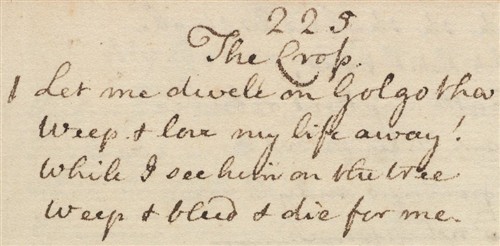 225
The Cross.
1 Let me dwell on Golgotha
Weep & love my life away!
While I see him on the tree
Weep & bleed & die for me.